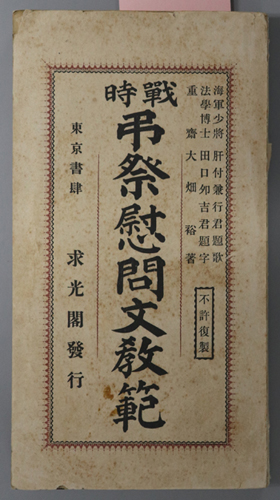 海軍少將 肝付兼行君題歌
法學博士 田口卯吉君題字
重齋 大畑裕著
不許復製
戰時
弔祭慰問文教範
東京書肆 求光閣發行